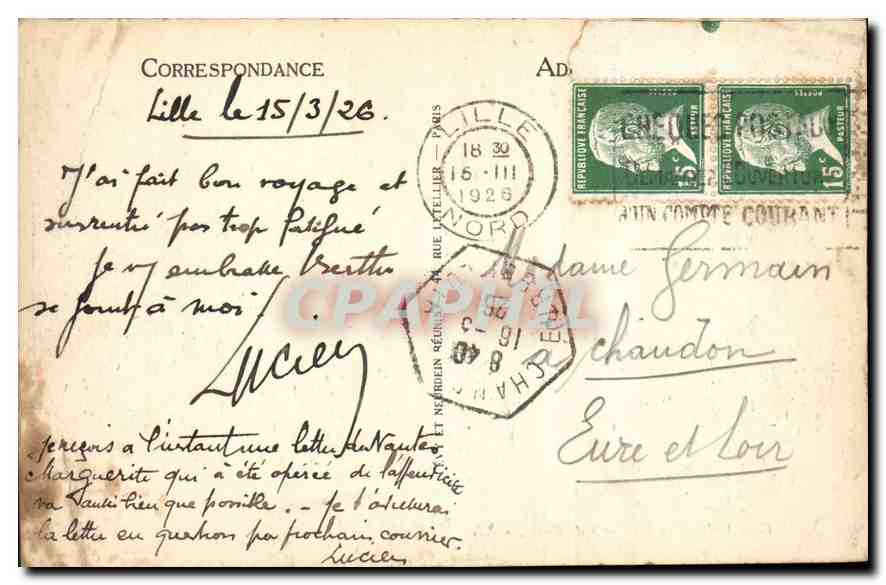 CORRESPONDANCE
Lille le 15/3/26.
J'ai fait bon voyage et
suis rentré pas trop fatigué
je vs embrasse Berthe
se joint à moi
Lucien
je reçois à l'instant une lettre de Nantes
Marguerite qui a été opérée de l'appendicite
va aussi bien que possible. - je t'
la lettre en question par prochain courrier.
Lucien
ET NEURDEIN RÉUNIS, 44, RUE LETELLIER — PARIS
LILLE
18 30
15 - III
1926
NORD
AD
REPUBLIQUE FRANÇAISE
PASTEUR
15c
REPUBLIQUE FRANÇAISE
PASTEUR
15c
CHEQUES POSTAUX
DEMANDEZ L'OUVERTURE
D'UN COMPTE COURANT
8 40
16 - 3
26
Madame Germain
à Chaudon
Eure et Loir
CPAPHIL